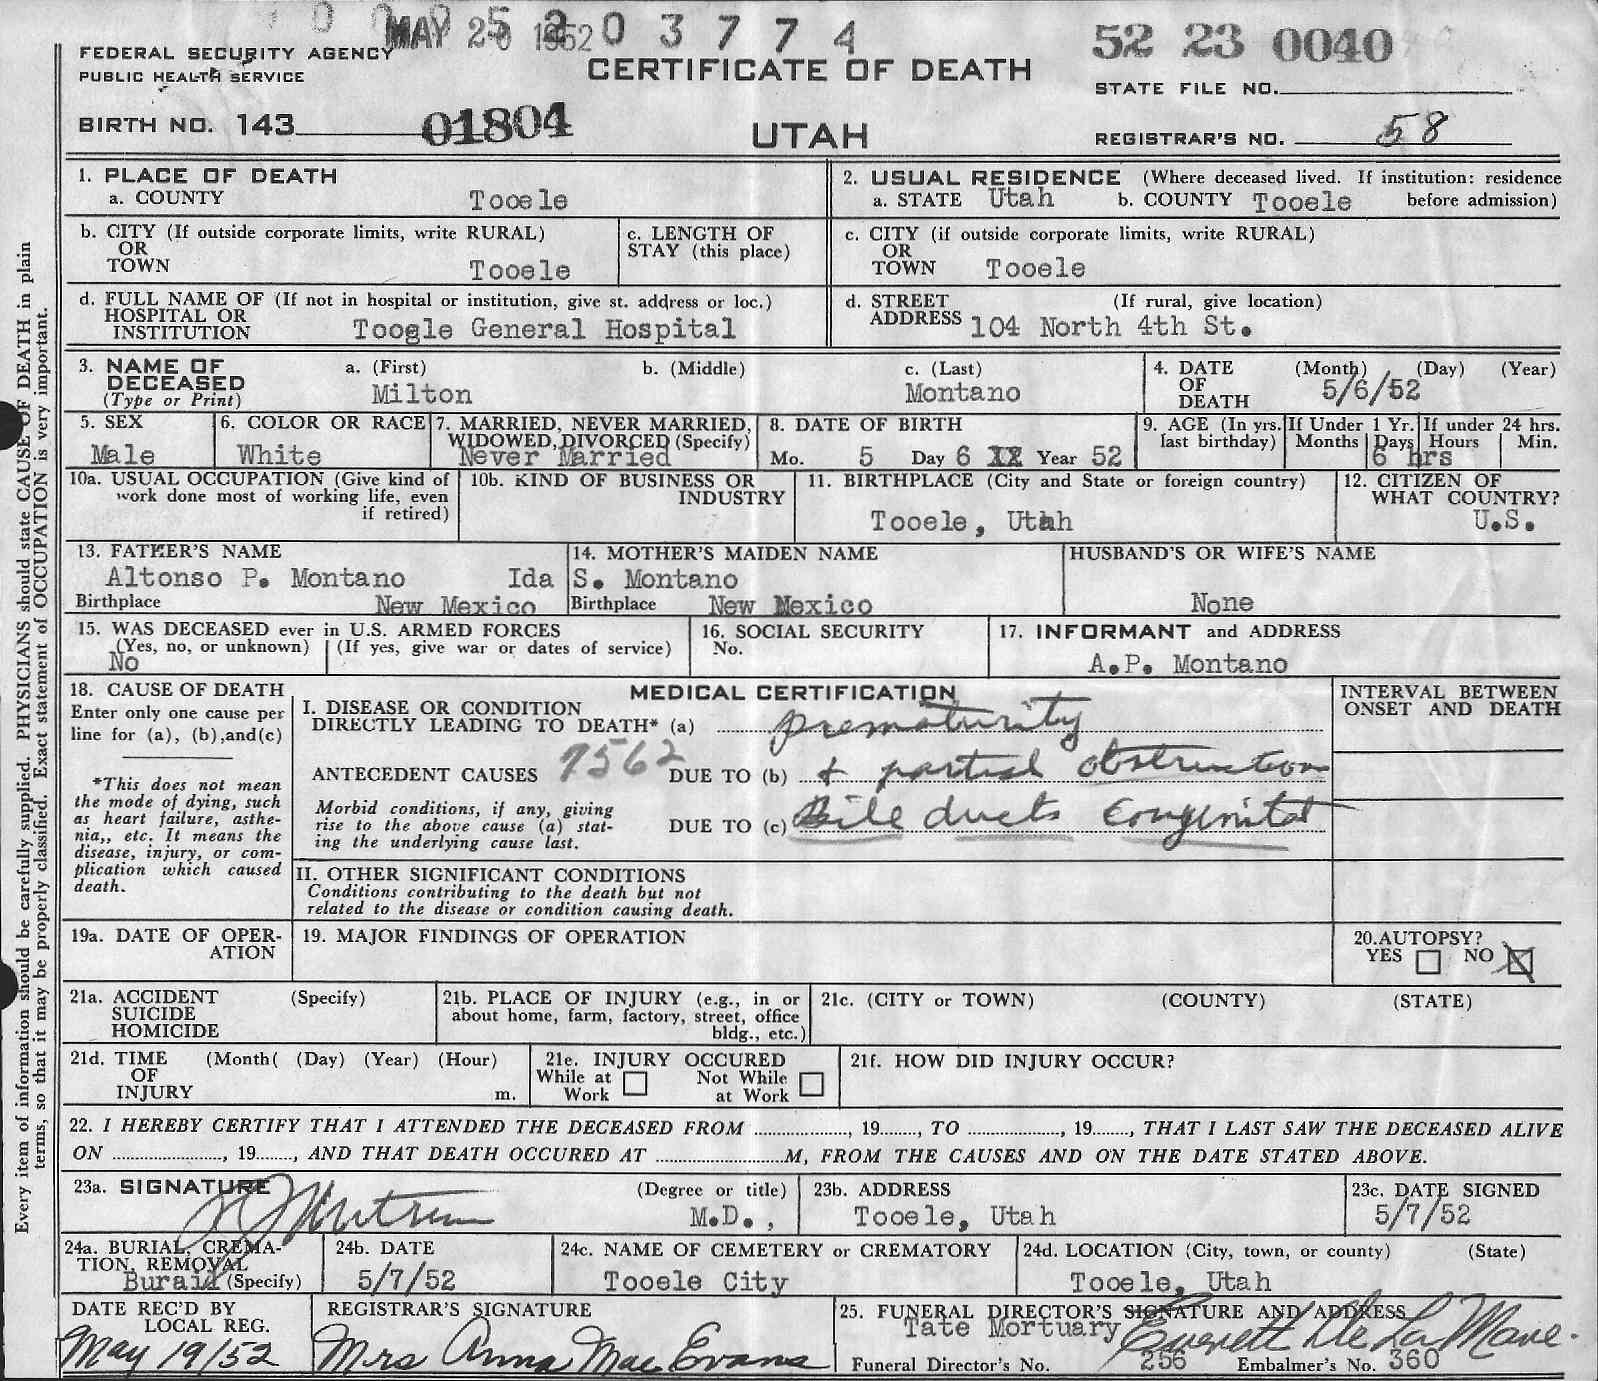 MAY 25 1952 0 3 7 7 4
52 23 0040
FEDERAL SECURITY AGENCY
PUBLIC HEALTH SERVICE
CERTIFICATE OF DEATH
STATE FILE NO.
BIRTH NO. 143 01804
UTAH
REGISTRAR'S NO. 58
1. PLACE OF DEATH
a. COUNTY Tooele
2. USUAL RESIDENCE (Where deceased lived. If institution: residence
a. STATE Utah b. COUNTY Tooele before admission)
b. CITY (If outside corporate limits, write RURAL)
OR
TOWN Tooele
c. LENGTH OF
STAY (this place)
c. CITY (if outside corporate limits, write RURAL)
OR
TOWN Tooele
d. FULL NAME OF (If not in hospital or institution, give st. address or loc.)
HOSPITAL OR
INSTITUTION Toogle General Hospital
d. STREET (If rural, give location)
ADDRESS 104 North 4th St.
3. NAME OF
DECEASED
(Type or Print)
a. (First) b. (Middle) c. (Last)
Milton Montano
4. DATE (Month) (Day) (Year)
OF
DEATH 5/6/52
5. SEX
Male
6. COLOR OR RACE
White
7. MARRIED, NEVER MARRIED,
WIDOWED, DIVORCED (Specify)
Never Married
8. DATE OF BIRTH
Mo. 5 Day 6 XX Year 52
9. AGE (In yrs.
last birthday)
If Under 1 Yr.
Months Days
If under 24 hrs.
Hours Min.
6 hrs
10a. USUAL OCCUPATION (Give kind of
work done most of working life, even
if retired)
10b. KIND OF BUSINESS OR
INDUSTRY
11. BIRTHPLACE (City and State or foreign country)
Tooele, Utah
12. CITIZEN OF
WHAT COUNTRY?
U.S.
13. FATHER'S NAME
Altonso P. Montano
Birthplace New Mexico
14. MOTHER'S MAIDEN NAME
Ida S. Montano
Birthplace New Mexico
HUSBAND'S OR WIFE'S NAME
None
15. WAS DECEASED ever in U.S. ARMED FORCES
(Yes, no, or unknown) (If yes, give war or dates of service)
No
16. SOCIAL SECURITY
No.
17. INFORMANT and ADDRESS
A.P. Montano
18. CAUSE OF DEATH
Enter only one cause per
line for (a), (b),and(c)
*This does not mean
the mode of dying, such
as heart failure, asthe-
nia,, etc. It means the
disease, injury, or com-
plication which caused
death.
MEDICAL CERTIFICATION
I. DISEASE OR CONDITION
DIRECTLY LEADING TO DEATH* (a) prematurity
ANTECEDENT CAUSES 7562 DUE TO (b) + partial obstruction
Morbid conditions, if any, giving
rise to the above cause (a) stat-
ing the underlying cause last.
DUE TO (c) Bile ducts Congenital
INTERVAL BETWEEN
ONSET AND DEATH
II. OTHER SIGNIFICANT CONDITIONS
Conditions contributing to the death but not
related to the disease or condition causing death.
19a. DATE OF OPER-
ATION
19. MAJOR FINDINGS OF OPERATION
20.AUTOPSY?
YES NO
21a. ACCIDENT (Specify)
SUICIDE
HOMICIDE
21b. PLACE OF INJURY (e.g., in or
about home, farm, factory, street, office
bldg., etc.)
21c. (CITY or TOWN) (COUNTY) (STATE)
21d. TIME (Month( (Day) (Year) (Hour)
OF
INJURY m.
21e. INJURY OCCURED
While at Not While
Work at Work
21f. HOW DID INJURY OCCUR?
22. I HEREBY CERTIFY THAT I ATTENDED THE DECEASED FROM ..................., 19......, TO ..................., 19......, THAT I LAST SAW THE DECEASED ALIVE
ON ..................., 19......, AND THAT DEATH OCCURED AT ...................M, FROM THE CAUSES AND ON THE DATE STATED ABOVE.
23a. SIGNATURE (Degree or title)
M.D.,
23b. ADDRESS
Tooele, Utah
23c. DATE SIGNED
5/7/52
24a. BURIAL, CREMA-
TION, REMOVAL
Burail (Specify)
24b. DATE
5/7/52
24c. NAME OF CEMETERY or CREMATORY
Tooele City
24d. LOCATION (City, town, or county) (State)
Tooele, Utah
DATE REC'D BY
LOCAL REG.
May 19/52
REGISTRAR'S SIGNATURE
Mrs Anna Mae Evans
25. FUNERAL DIRECTOR'S SIGNATURE AND ADDRESS
Tate Mortuary Everett De La Mare.
Funeral Director's No. 256 Embalmer's No. 360
Every item of information should be carefully supplied. PHYSICIANS should state CAUSE OF DEATH in plain
terms, so that it may be properly classified. Exact statement of OCCUPATION is very important.